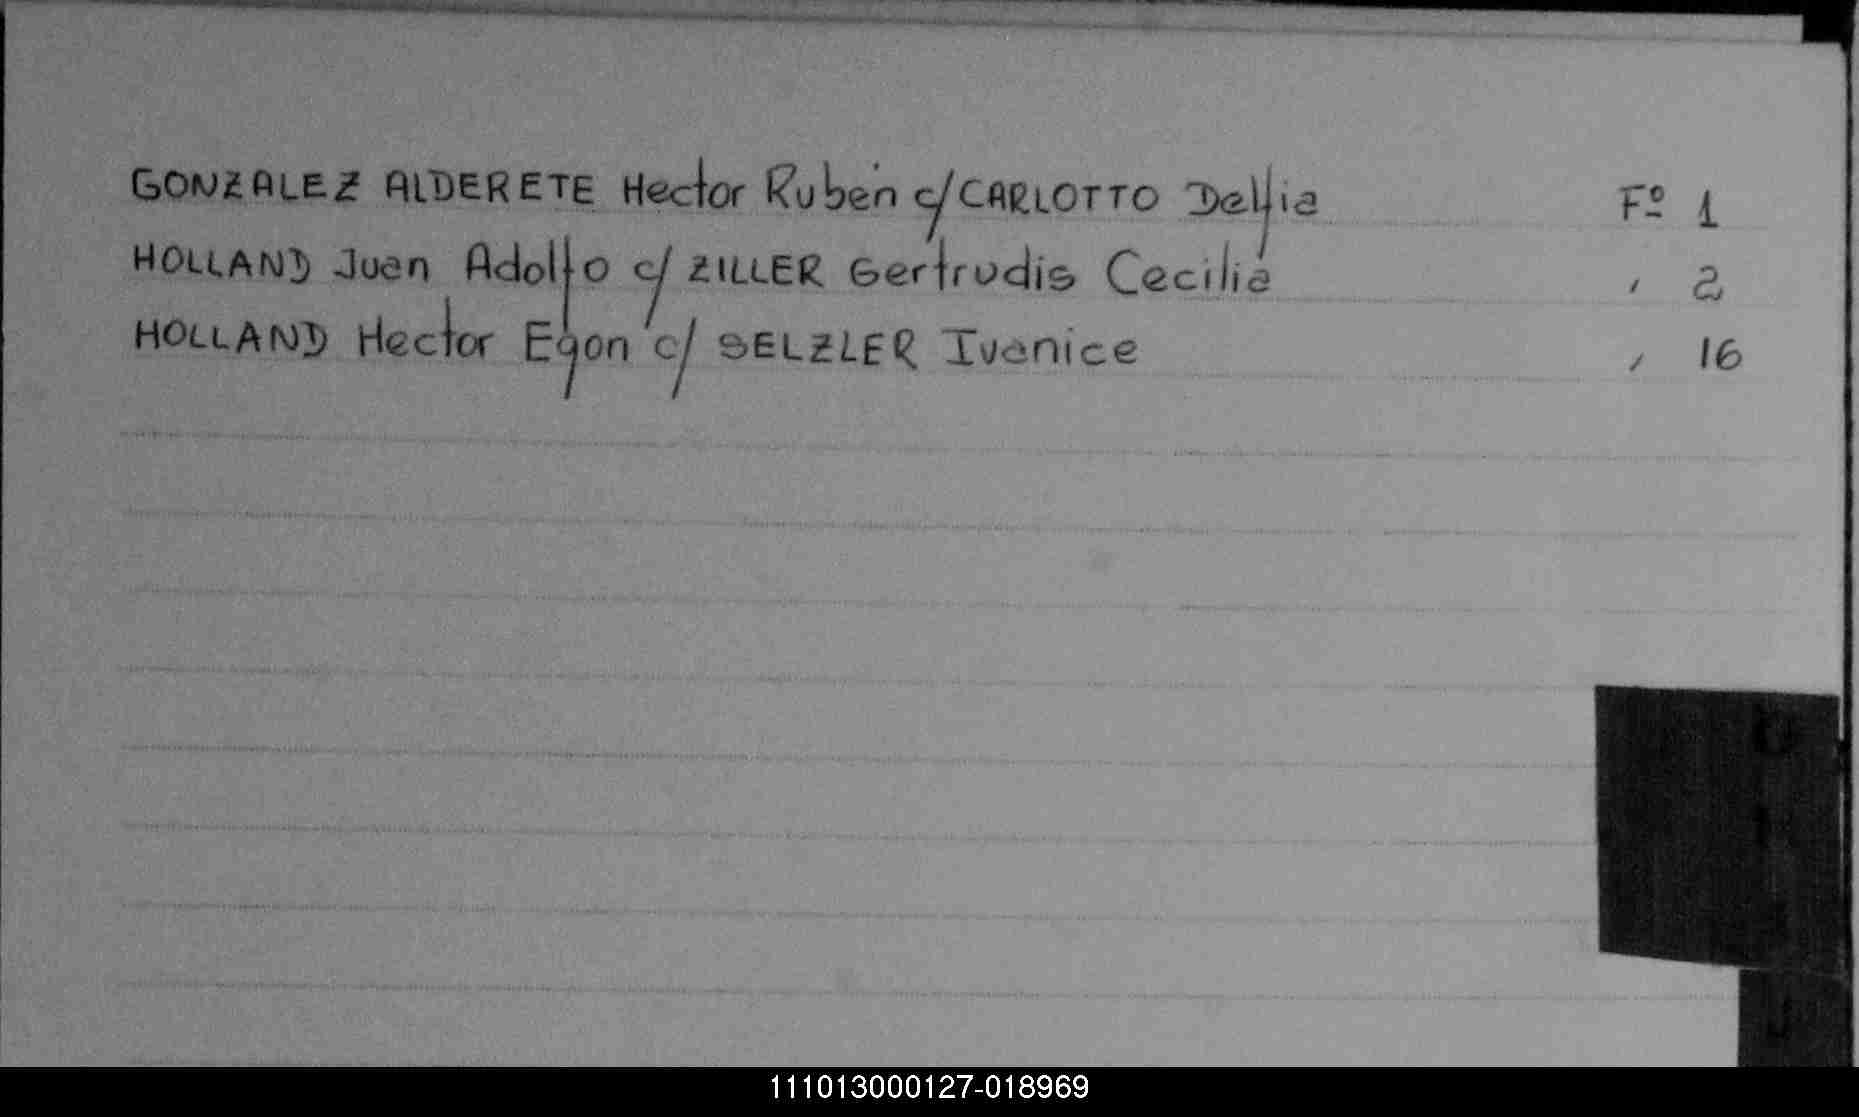 GONZALEZ ALDERETE Hector Rubén c/ CARLOTTO Delfia Fº 1
HOLLAND Juan Adolfo c/ ZILLER Gertrudis Cecilia , 2
HOLLAND Hector Egon c/ SELZLER Ivanice , 16
111013000127-018969